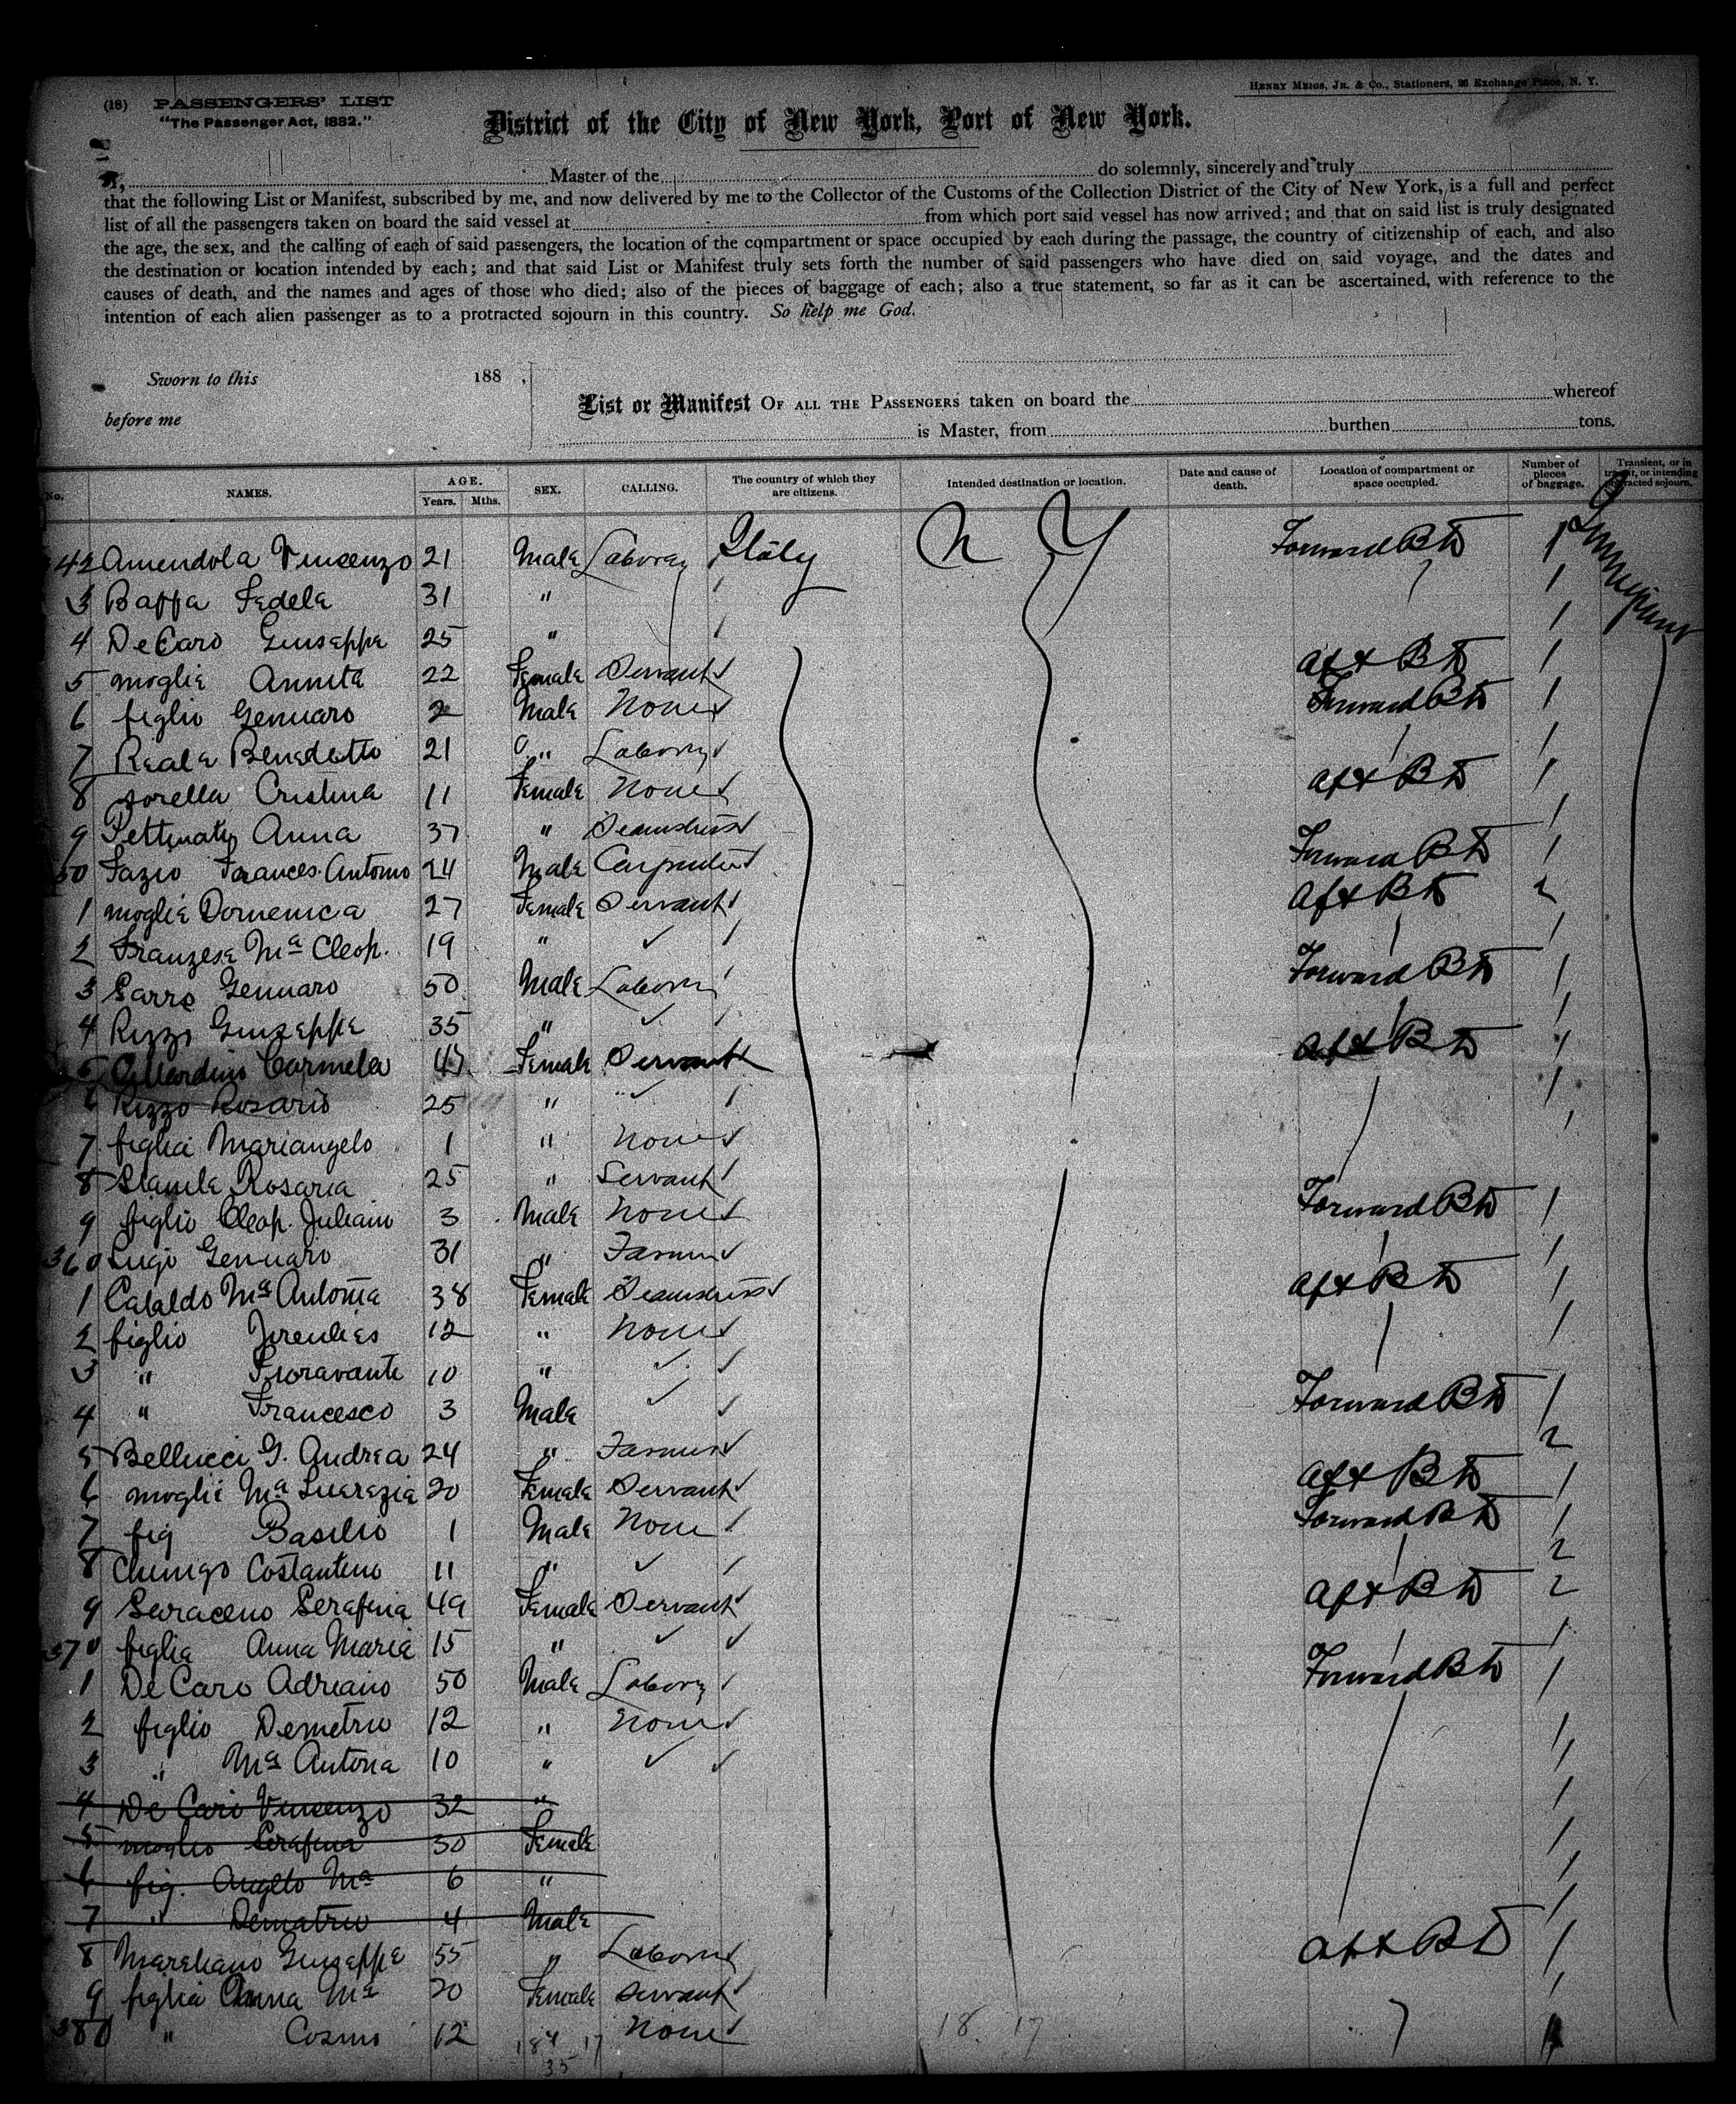 HENRY MEIGS, JR. & CO., Stationers, 26 Exchange Place, N. Y.
(18) PASSENGERS' LIST
"The Passenger Act, 1882."
District of the City of New York, Port of New York.
I, Master of the do solemnly, sincerely and truly
that the following List or Manifest, subscribed by me, and now delivered by me to the Collector of the Customs of the Collection District of the City of New York, is a full and perfect
list of all the passengers taken on board the said vessel at from which port said vessel has now arrived; and that on said list is truly designated
the age, the sex, and the calling of each of said passengers, the location of the compartment or space occupied by each during the passage, the country of citizenship of each, and also
the destination or location intended by each; and that said List or Manifest truly sets forth the number of said passengers who have died on said voyage, and the dates and
causes of death, and the names and ages of those who died; also of the pieces of baggage of each; also a true statement, so far as it can be ascertained, with reference to the
intention of each alien passenger as to a protracted sojourn in this country. So help me God.
Sworn to this 188 ,
before me
List or Manifest OF ALL THE PASSENGERS taken on board the whereof
is Master, from burthen tons.
No. NAMES. AGE. Years. Mths. SEX. CALLING. The country of which they are citizens. Intended destination or location. Date and cause of death. Location of compartment or space occupied. Number of pieces of baggage. Transient, or in transit, or intending protracted sojourn.
42 Amendola Vincenzo 21 Male Laborer Italy N Y Forward B D 1
3 Baffa Fedele 31 " 1
4 De Caro Giuseppe 25 " 1
5 moglie Annita 22 Female Servant Aft B D 1
6 figlio Gennaro 2 Male None Forward B D 1
7 Reale Benedetto 21 " Laborer 1
8 sorella Cristina 11 Female None Aft B D 1
9 Anna 37 " Seamstress 1
50 Fazio Frances. Antonio 24 Male Carpenter Forward B D 1
1 moglie Domenica 27 Female Servant Aft B D 2
2 Franzese Ma Cleop. 19 " 1
3 Sarro Gennaro 50 Male Laborer Forward B D 1
4 Rizzo Giuseppe 35 " 1
5 Carmela Female Servant Aft B D 1
6 Rizzo Rosario 25 " 1
7 figlia Mariangelo 1 " None 1
8 Rosaria 25 " Servant
9 figlio Cleop. Juliano 3 Male None Forward B D 1
360 Lugo Gennaro 31 " Farmer 1
1 Cataldo Ma Antonia 38 Female Seamstress Aft B D 1
2 figlio 12 " None 1
3 " Fioravante 10 "
4 " Francesco 3 Male Forward B D 1
5 Bellucci G. Andrea 24 " Farmer 2
6 moglie Ma Lucrezia 20 Female Servant Aft B D 1
7 fig Basilio 1 Male None Forward B D 1
8 Chinigo Costantino 11 " 2
9 Saraceno Serafina 49 Female Servant Aft B D 2
370 figlia Anna Maria 15 " 1
1 De Caro Adriano 50 Male Laborer Forward B D 1
2 figlio Demetrio 12 " None 1
3 " Ma Antonia 10 " 1
4 De Caro Vincenzo 32 " 1
5 moglie Serafina 30 Female 1
6 fig. Angelo Ma 6 " 1
7 " Demetrio 4 Male 1
8 Giuseppe 55 " Laborer Aft B D 1
9 figlia Anna Ma 20 Female Servant 1
380 " Cosmo 12 None 1
18. 17